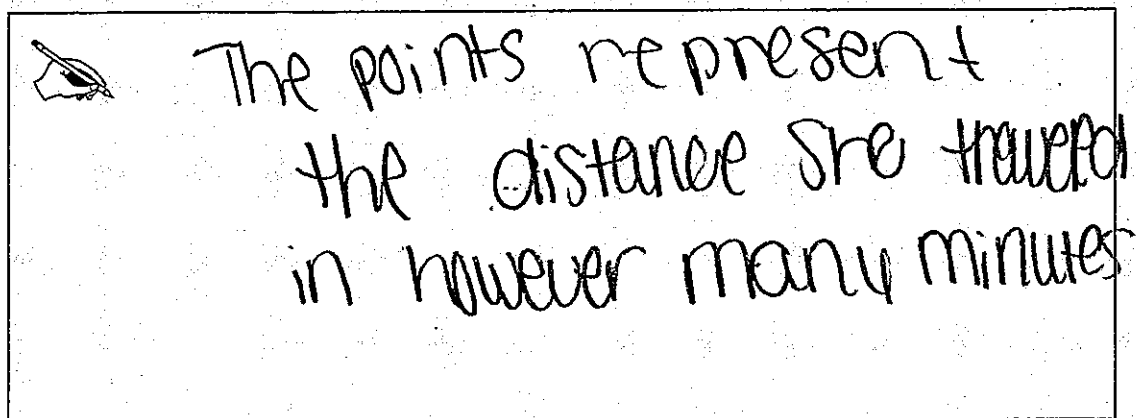 The points represent
the distance she traveled
in however many minutes